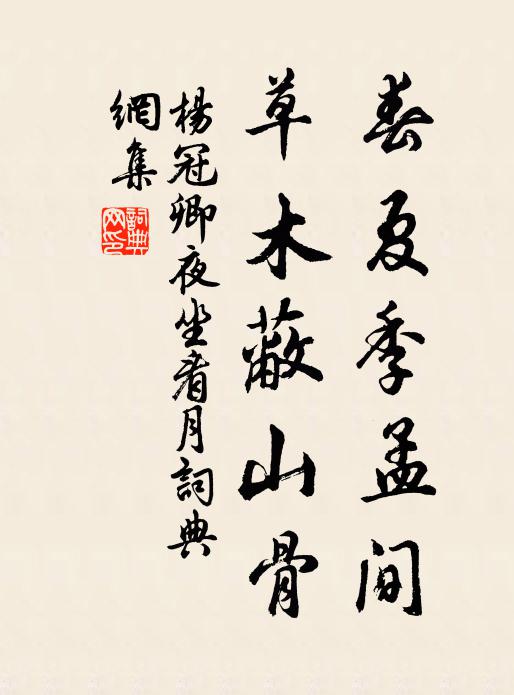 春夏季孟间
草木蔽山骨
楊冠卿夜坐看月詞典
網集
詞典
网印